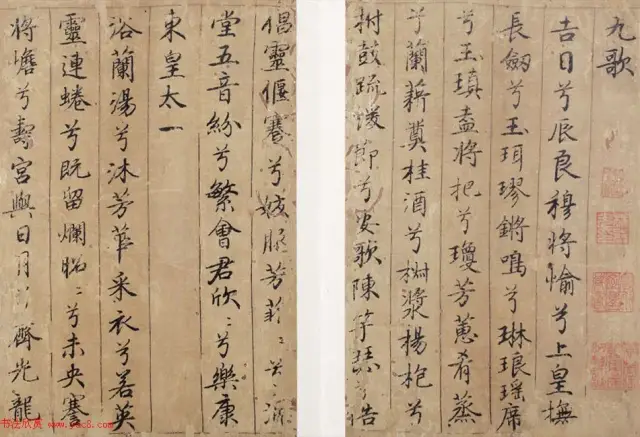 九歌
吉日兮辰良穆將愉兮上皇撫
長劒兮玉珥璆鏘鳴兮琳琅瑶席
兮玉瑱盍將把兮瓊芳蕙肴蒸
兮蘭藉奠桂酒兮椒漿楊枹兮
拊鼓疏緩節兮安歌陳竽瑟兮浩
倡靈偃蹇兮姣服芳菲〻兮滿
堂五音紛兮繁會君欣〻兮樂康
東皇太一
浴蘭湯兮沐芳華采衣兮若英
靈連蜷兮既留爛昭〻兮未央蹇
將憺兮壽宮與日月兮齊光龍
书法欣赏 www.yac8.com